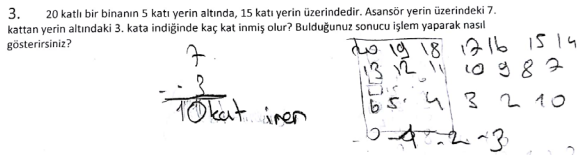 3. 20 katlı bir binanın 5 katı yerin altında, 15 katı yerin üzerindedir. Asansör yerin üzerindeki 7.
kattan yerin altındaki 3. kata indiğinde kaç kat inmiş olur? Bulduğunuz sonucu işlem yaparak nasıl
gösterirsiniz?
7
- 3
10 kat iner
20 19 18 17 16 15 14
13 12 11 10 9 8 7
6 5 4 3 2 1 0
0 -1 -2 -3